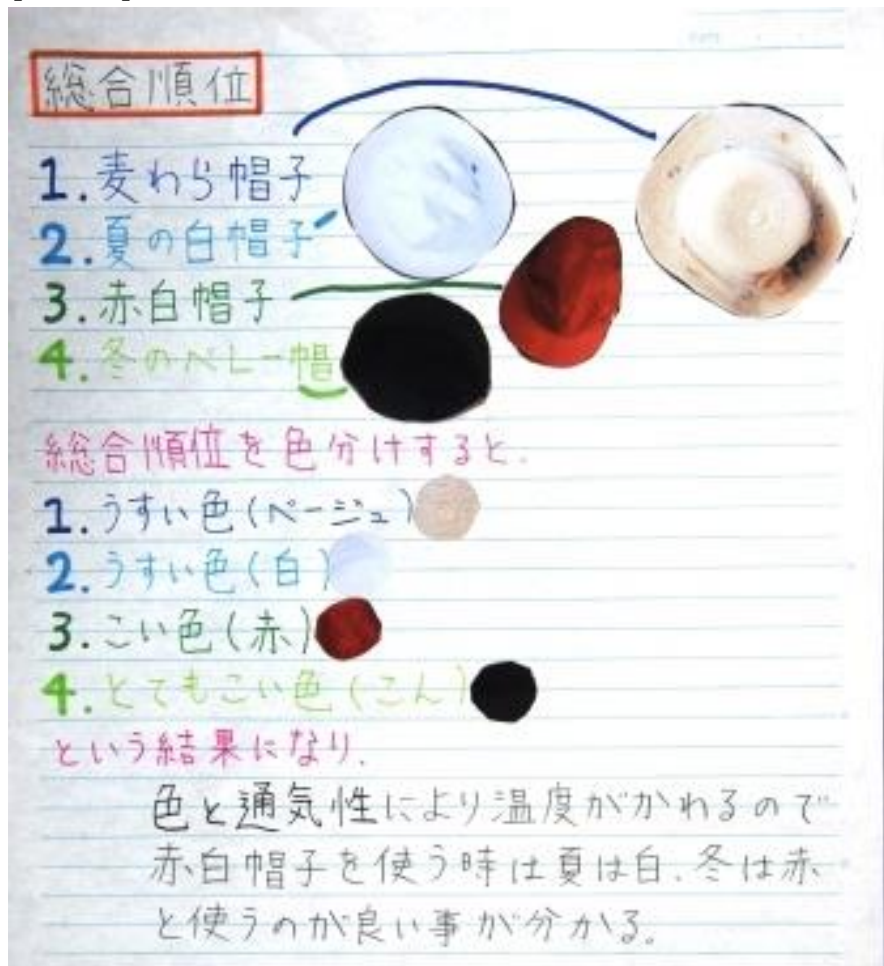 総合順位
1.麦わら帽子
2.夏の白帽子
3.赤白帽子
4.冬のベレー帽
総合順位を色分けすると、
1.うすい色(ベージュ)
2.うすい色(白)
3.こい色(赤)
4.とてもこい色(こん)
という結果になり、
色と通気性により温度がかわるので
赤白帽子を使う時は夏は白、冬は赤
と使うのが良い事が分かる。